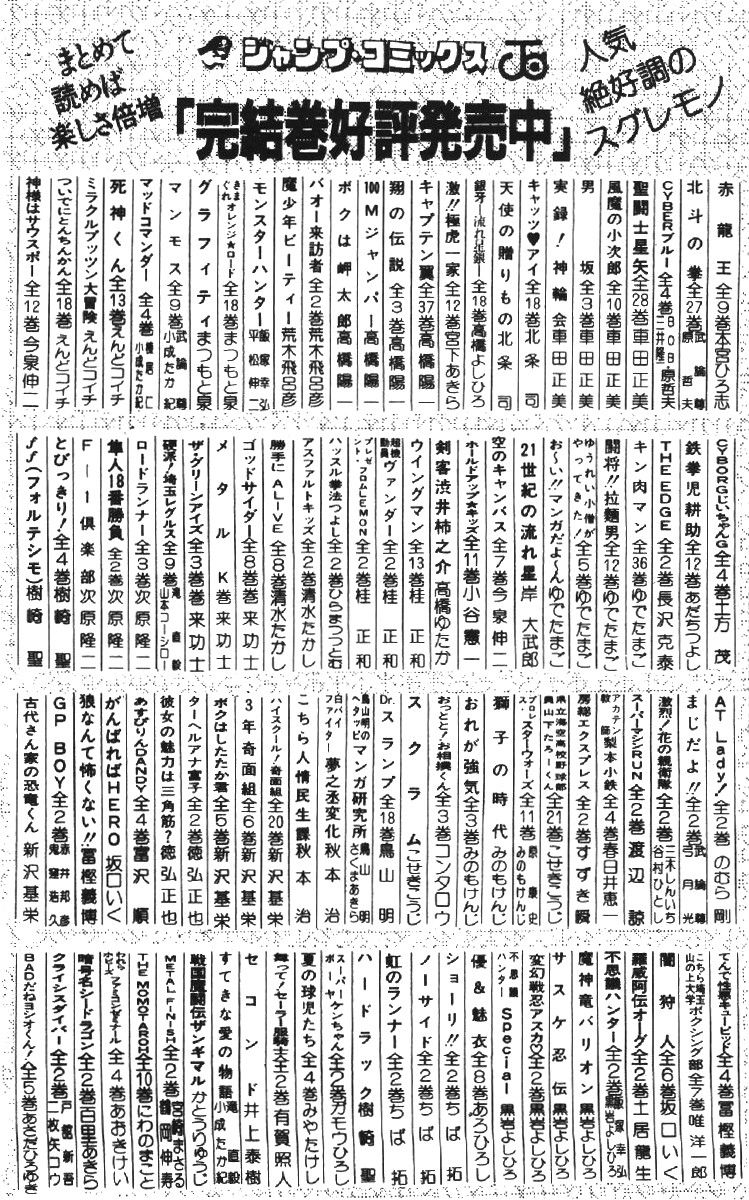 まとめて
読めば
楽しさ倍増
ジャンプ・コミックス
人気
絶好調の
スグレモノ
「完結巻好評発売中」
赤龍王 全9巻 本宮ひろ志
北斗の拳 全27巻 武論尊 原哲夫
CYBERブルー 全4巻 BOB 三井隆一 原哲夫
聖闘士星矢 全28巻 車田正美
風魔の小次郎 全10巻 車田正美
男坂 全3巻 車田正美
実録!神輪会 車田正美
キャッツ♥アイ 全18巻 北条司
天使の贈りもの 北条司
銀牙―流れ星銀― 全18巻 高橋よしひろ
激!!極虎一家 全12巻 宮下あきら
キャプテン翼 全37巻 高橋陽一
翔の伝説 全3巻 高橋陽一
100Mジャンパー 高橋陽一
ボクは岬太郎 高橋陽一
バオー来訪者 全2巻 荒木飛呂彦
魔少年ビーティー 荒木飛呂彦
モンスターハンター 飯塚幸弘 平松伸二
きまぐれオレンジ★ロード 全18巻 まつもと泉
グラフィティ まつもと泉
マンモス 全9巻 武論尊 小成たか紀
マッドコマンダー 全4巻 小成たか紀
死神くん 全13巻 えんどコイチ
ミラクルプッツン大冒険 えんどコイチ
ついでにとんちんかん 全18巻 えんどコイチ
神様はサウスポー 全12巻 今泉伸二
CYBORGじいちゃんG 全4巻 土方茂
鉄拳児耕助 全12巻 あだちつよし
THE EDGE 全2巻 長沢克泰
キン肉マン 全36巻 ゆでたまご
闘将!!拉麺男 全12巻 ゆでたまご
ゆうれい小僧がやってきた! 全5巻 ゆでたまご
お〜い!!マンガだよ〜ん ゆでたまご
21世紀の流れ星 岸大武郎
空のキャンバス 全7巻 今泉伸二
ホールドアップ★キッズ 全11巻 小谷憲一
剣客渋井柿之介 高橋ゆたか
ウイングマン 全13巻 桂正和
超機動員ヴァンダー 全2巻 桂正和
プレゼント・フロムLEMON 全2巻 桂正和
ハッスル拳法つよし 全2巻 ひらまつつとむ
アスファルトキッズ 全2巻 清水たかし
勝手にALIVE 全8巻 清水たかし
ゴッドサイダー 全8巻 巻来功士
メタルK 巻来功士
ザ・グリーンアイズ 全3巻 巻来功士
硬派!埼玉レグルス 全9巻 滝直毅 山本コーシロー
ロードランナー 全3巻 次原隆二
隼人18番勝負 全2巻 次原隆二
F―1倶楽部 次原隆二
とびっきり! 全4巻 樹崎聖
ff(フォルテシモ) 樹崎聖
AT Lady! 全2巻 のむら剛
まじだよ!! 全2巻 武論尊 弓月光
激烈!花の親衛隊 全2巻 三木しんいち 谷村ひとし
スーパーマシンRUN 全2巻 渡辺諒
アカテン教師梨本小鉄 全4巻 春日井恵一
房総エクスプレス 全2巻 すずき瞬
県立海空高校野球部員山下たろーくん 全21巻 こせきこうじ
プロレス・スターウォーズ 全11巻 原康史 みのもけんじ
獅子の時代 みのもけんじ
おれが強気 全3巻 みのもけんじ
おっとと!お相撲くん 全3巻 コンタロウ
スクラム こせきこうじ
Dr.スランプ 全18巻 鳥山明
鳥山明のヘタッピマンガ研究所 鳥山明 さくまあきら
白バイファイター 夢之丞変化 秋本治
こちら人情民生課 秋本治
ハイスクール!奇面組 全20巻 新沢基栄
3年奇面組 全6巻 新沢基栄
ボクはしたたか君 全5巻 新沢基栄
ターヘルアナ富子 全2巻 徳弘正也
彼女の魅力は三角筋? 徳弘正也
あすぴりんDANDY 全4巻 富沢順
がんばればHERO 坂口いく
狼なんて怖くない!! 冨樫義博
GP BOY 全2巻 赤井邦彦 鬼窪浩久
古代さん家の恐竜くん 新沢基栄
てんで性悪キューピッド 全4巻 冨樫義博
こちら埼玉山の上大学ボクシング部 全7巻 唯洋一郎
闇狩人 全6巻 坂口いく
羅威阿伝オーグ 全2巻 土居龍生
不思議ハンター 全2巻 飯塚幸弘 黒岩よしひろ
魔神竜バリオン 黒岩よしひろ
サスケ忍伝 黒岩よしひろ
変幻戦忍アスカ 全2巻 黒岩よしひろ
不思議ハンターSpecial 黒岩よしひろ
優&魅衣 全8巻 あろひろし
ショーリ!! 全2巻 ちば拓
ノーサイド 全2巻 ちば拓
虹のランナー 全2巻 ちば拓
ハードラック 樹崎聖
スーパーボーヤ ケンちゃん 全2巻 ガモウひろし
夏の球児たち 全4巻 みやたけし
舞って!セーラー服騎士 全2巻 有賀照人
セコンド 井上泰樹
すてきな愛の物語 滝直毅 小成たか紀
戦国魔闘伝ザンギマル かとうりゅうじ
METAL FINISH 全2巻 宮崎まさる 鶴岡伸寿
THE MOMOTAROH 全10巻 にわのまこと
わたるワールズファミコンゼミナール 全4巻 あおきけい
暗号名シードラゴン 全2巻 百里あきら
クライシスダイバー 全2巻 戸舘新吾 二枚矢コウ
BADだねヨシオくん! 全5巻 あさだひろゆき